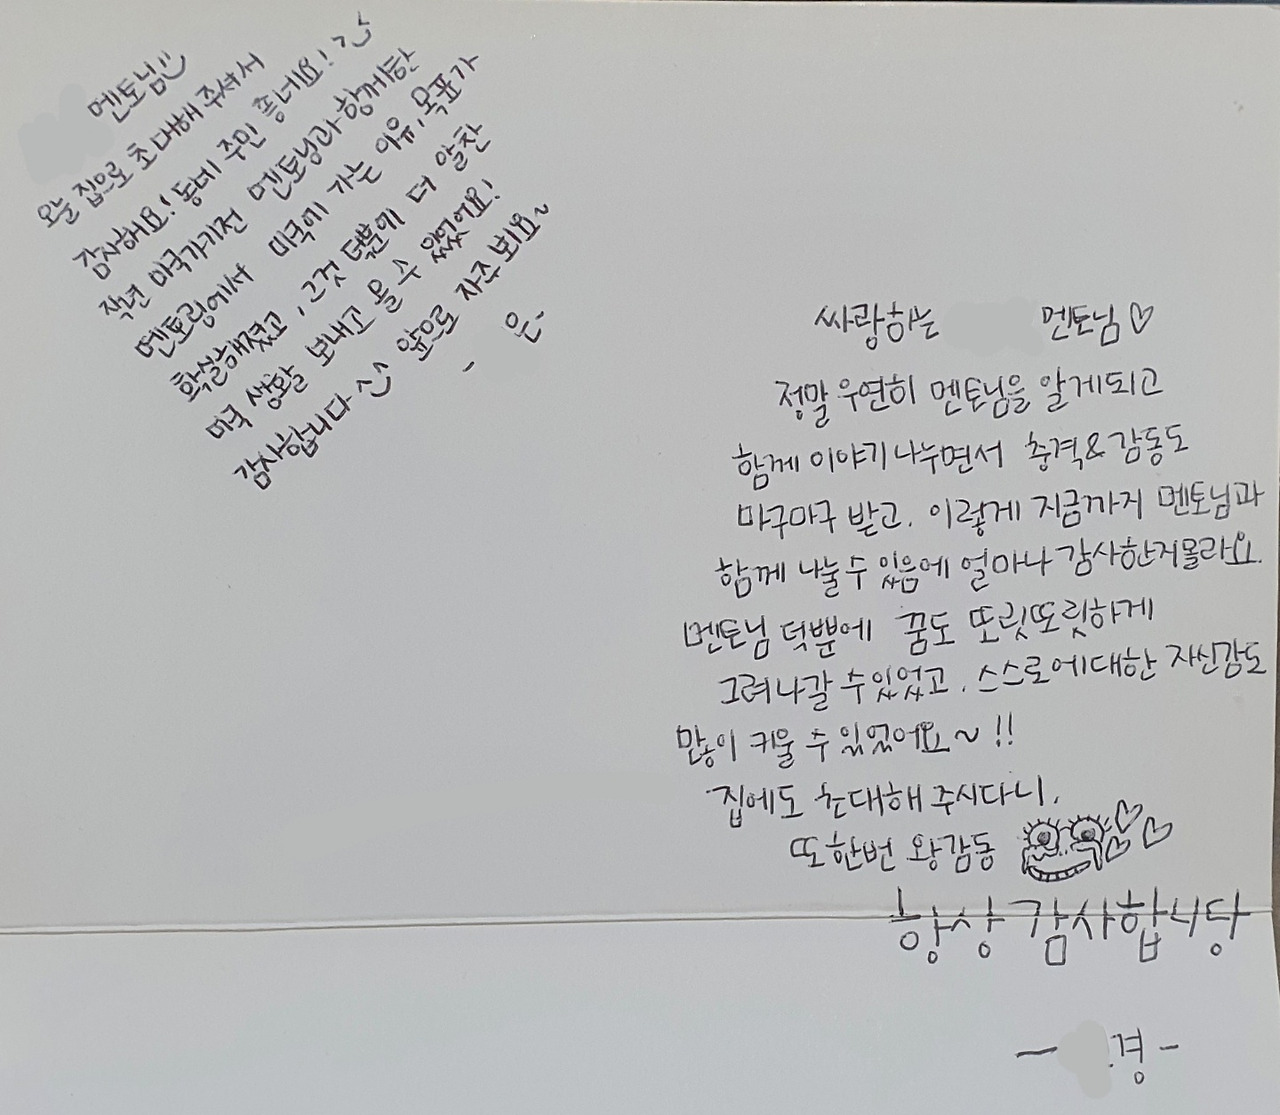 멘토님
오늘 집으로 초대해 주셔서
감사해요! 동네 주민 좋네요! ㄱ
작년 미국가기전 멘토님과 함께한
멘토링에서 미국에 가는 이유, 목표가
확실해졌고, 그것 덕분에 더 알찬
미국 생활 보내고 올 수 있었어요!
감사합니다 ^^ 앞으로 자주 뵈요~
- 은-
싸랑하는 멘토님♡
정말 우연히 멘토님을 알게되고
함께 이야기 나누면서 충격&감동도
마구마구 받고, 이렇게 지금까지 멘토님과
함께 나눌 수 있음에 얼마나 감사한지몰라요.
멘토님 덕뿐에 꿈도 또릿또릿하게
그려나갈 수있었고, 스스로에대한 자신감도
많이 키울 수 있었어요~!!
집에도 초대해 주시다니,
또한번 왕감동
항상 감사합니당
- 경-